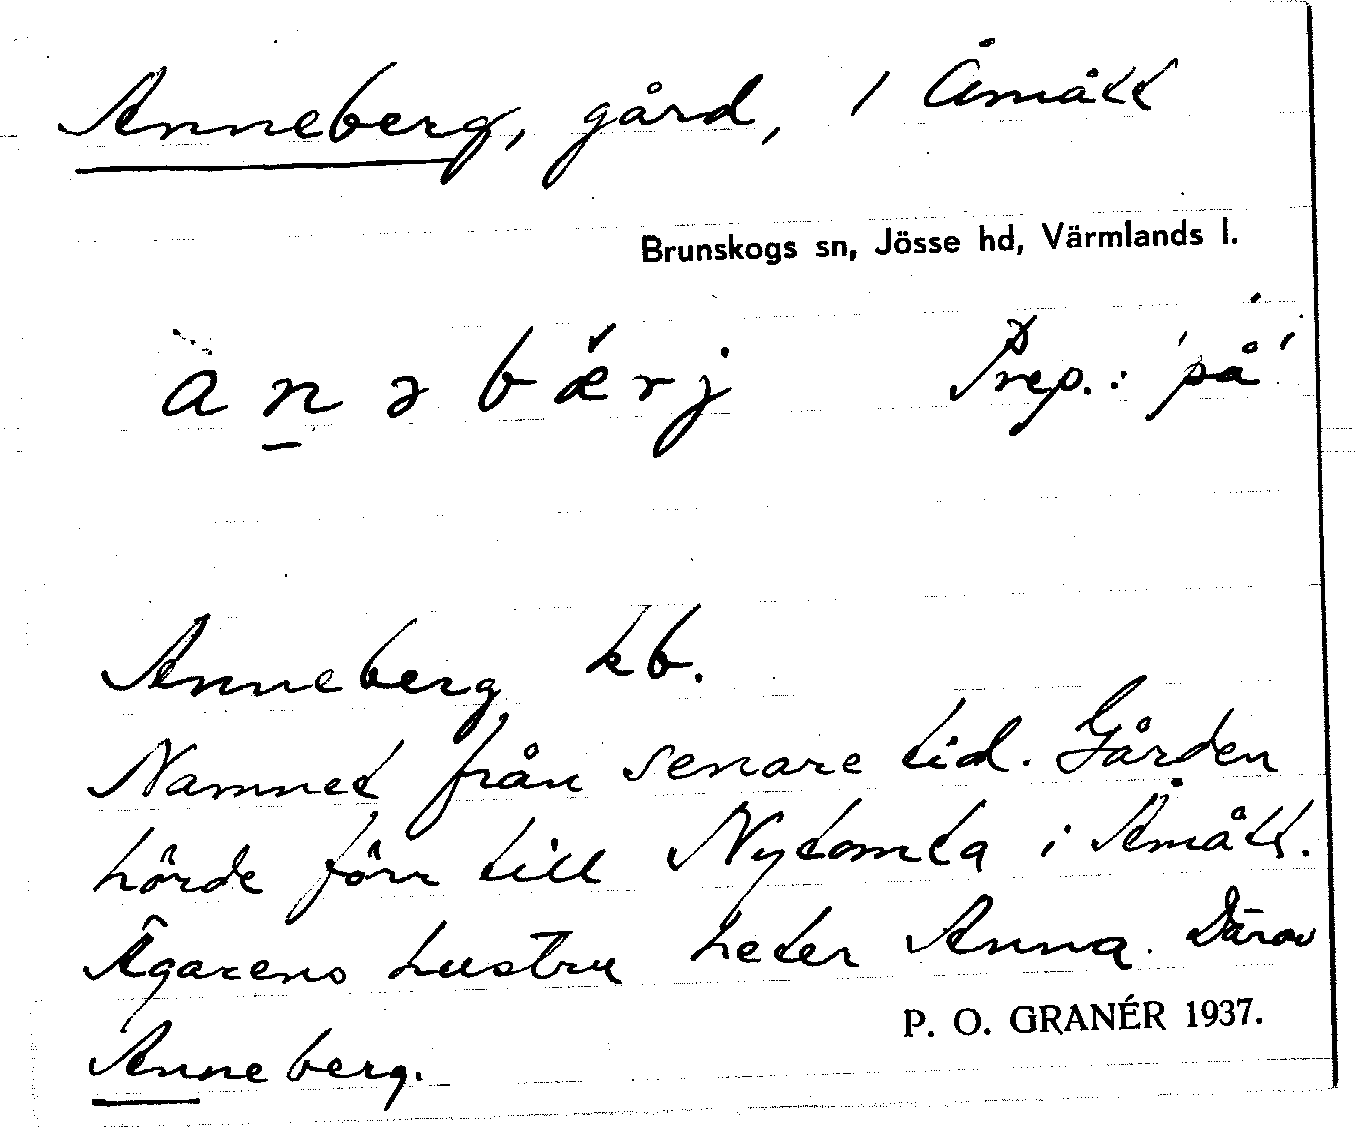 Anneberg, gård, i Åmått
Brunskogs sn, Jösse hd, Värmlands l.
ànəbǽrj Prep.: 'på'
Anneberg kb.
Namnet från senare tid. Gården
hörde förr till Nytomta i Åmått.
Ägarens hustru heter Anna. Därav
Anneberg.
P. O. GRANÉR 1937.